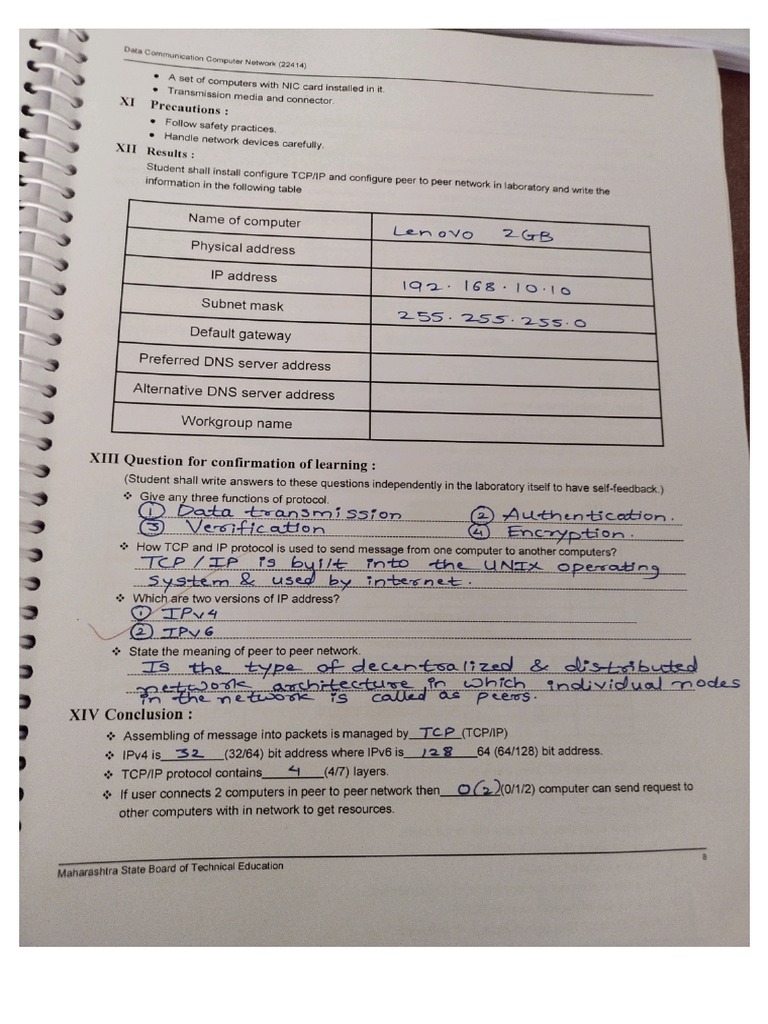 Data Communication Computer Network (22414)
• A set of computers with NIC card installed in it.
• Transmission media and connector.
XI Precautions :
• Follow safety practices.
• Handle network devices carefully.
XII Results :
Student shall install configure TCP/IP and configure peer to peer network in laboratory and write the
information in the following table
Name of computer Lenovo 2GB
Physical address
IP address 192.168.10.10
Subnet mask 255.255.255.0
Default gateway
Preferred DNS server address
Alternative DNS server address
Workgroup name
XIII Question for confirmation of learning :
(Student shall write answers to these questions independently in the laboratory itself to have self-feedback.)
❖ Give any three functions of protocol.
① Data transmission ② Authentication.
③ Verification ④ Encryption.
❖ How TCP and IP protocol is used to send message from one computer to another computers?
TCP / IP is built into the UNIX operating
system & used by internet.
❖ Which are two versions of IP address?
① IPv4
② IPv6
❖ State the meaning of peer to peer network.
Is the type of decentralized & distributed
network architecture in which individual nodes
in the network is called as peers.
XIV Conclusion :
❖ Assembling of message into packets is managed by TCP (TCP/IP)
❖ IPv4 is 32 (32/64) bit address where IPv6 is 128 64 (64/128) bit address.
❖ TCP/IP protocol contains 4 (4/7) layers.
❖ If user connects 2 computers in peer to peer network then 0(2) (0/1/2) computer can send request to
other computers with in network to get resources.
Maharashtra State Board of Technical Education
8